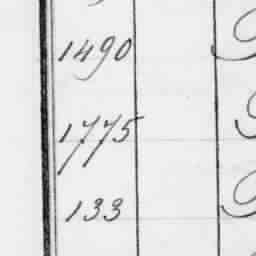 1490
1775
133